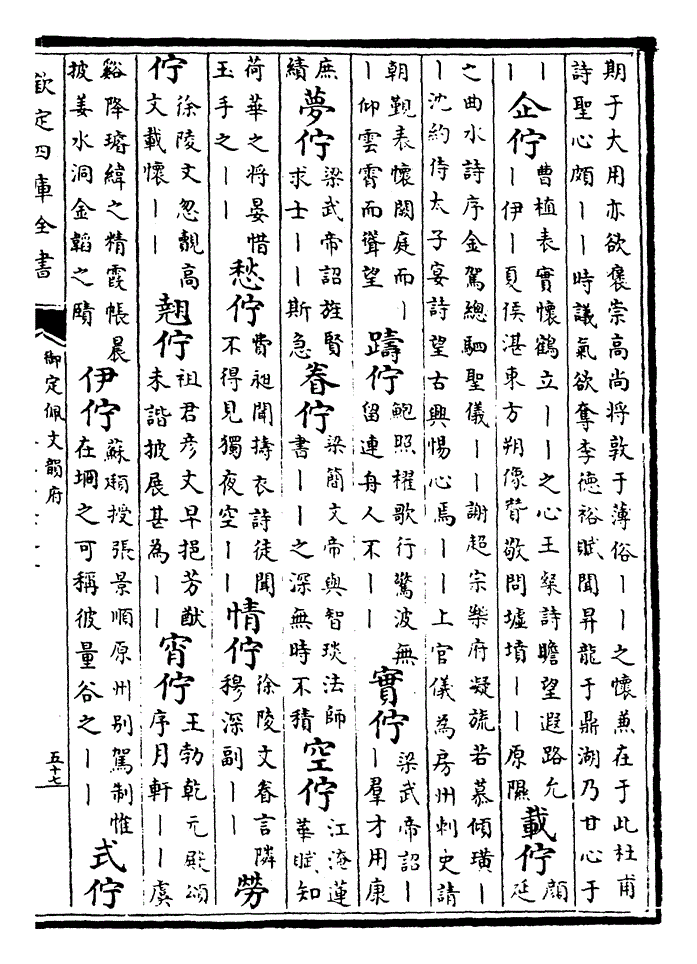 期于大用亦欲襃崇高尚將敦于薄俗丨丨之懷兼在于此杜甫
詩聖心頗丨丨時議氣欲奪李德裕賦聞昇龍于鼎湖乃甘心于
丨
丨
企佇
曹植表實懷鶴立丨丨之心王粲詩瞻望遐路允
丨伊丨夏侯湛東方朔像贊敬問墟墳丨丨原隰
載佇
顔
延
之曲水詩序金駕總駟聖儀丨丨謝超宗樂府凝旒若慕傾璜丨
丨沈約侍太子宴詩望古興惕心焉丨丨上官儀為房州刺史請
朝覲表懷闕庭而丨
丨仰雲霄而聳望
躊佇
鮑照櫂歌行驚波無
留連舟人不丨丨
實佇
梁武帝詔丨
丨羣才用康
庶
績
夢佇
梁武帝詔旌賢
求士丨丨斯急
眷佇
梁簡文帝與智琰法師
書丨丨之深無時不積
空佇
江淹蓮
華賦知
荷華之將晏惜
玉手之丨丨
愁佇
費昶聞擣衣詩徒聞
不得見獨夜空丨丨
情佇
徐陵文眷言隣
穆深副丨丨
勞
佇
徐陵文忽覿高
文載懷丨丨
翹佇
祖君彦文早挹芳猷
未諧披展甚為丨丨
宵佇
王勃乾元殿頌
序月軒丨丨虞
谿降璿緯之精霞帳晨
披姜水洞金韜之賾
伊佇
蘇頲授張景順原州别駕制惟
在坰之可稱彼量谷之丨丨
式佇
欽定四庫全書
御定佩文韻府
五十七